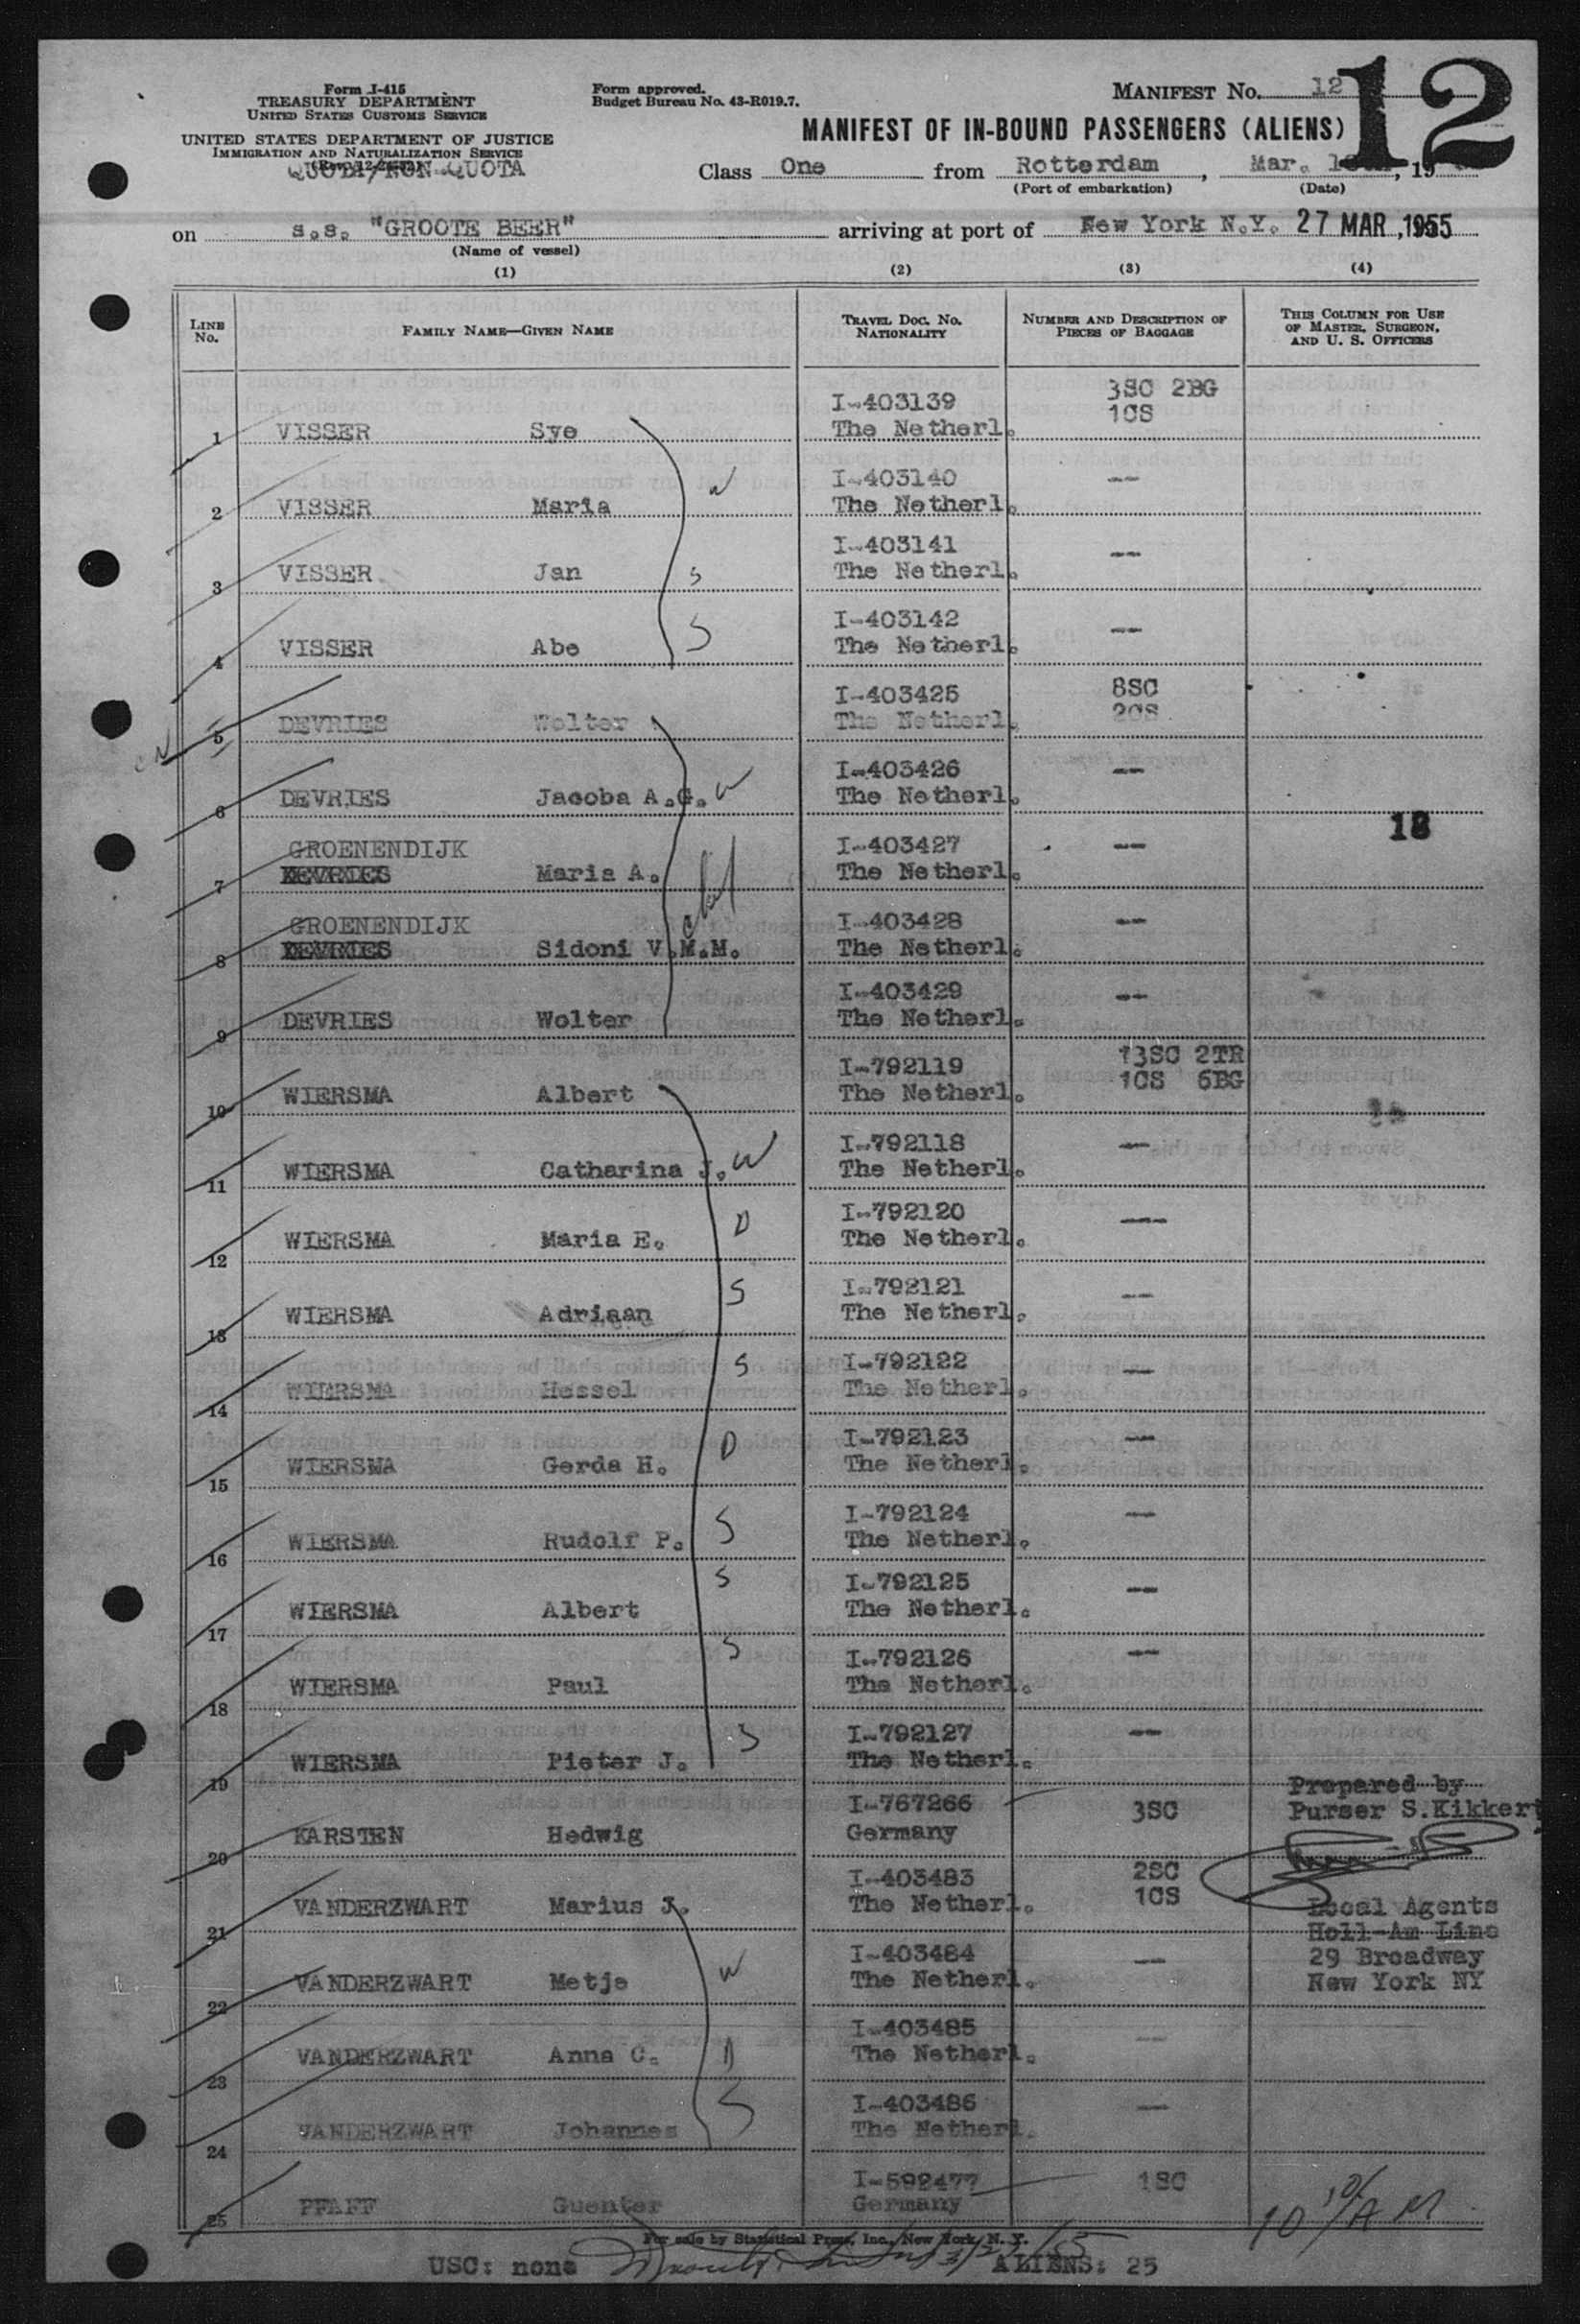 Form I-415
TREASURY DEPARTMENT
UNITED STATES CUSTOMS SERVICE
UNITED STATES DEPARTMENT OF JUSTICE
IMMIGRATION AND NATURALIZATION SERVICE
QUOTA/NON-QUOTA
Form approved.
Budget Bureau No. 43-R019.7.
MANIFEST NO. 12
12
MANIFEST OF IN-BOUND PASSENGERS (ALIENS)
Class One from Rotterdam, Mar. , 19
(Port of embarkation) (Date)
on s.s. "GROOTE BEER" arriving at port of New York N.Y. 27 MAR , 1955
(Name of vessel)
(1) (2) (3) (4)
LINE NO. FAMILY NAME—GIVEN NAME TRAVEL DOC. NO. NATIONALITY NUMBER AND DESCRIPTION OF PIECES OF BAGGAGE THIS COLUMN FOR USE OF MASTER, SURGEON, AND U. S. OFFICERS
I-403139 3SC 2BG
1 VISSER Sye The Netherl. 1CS
I-403140 --
2 VISSER Maria W The Netherl.
I-403141 --
3 VISSER Jan S The Netherl.
I-403142 --
4 VISSER Abe S The Netherl.
I-403425 8SC
5 DEVRIES Wolter The Netherl. 2CS
I-403426 --
6 DEVRIES Jacoba A.G. W The Netherl.
18
GROENENDIJK I-403427 --
7 DEVRIES Maria A. The Netherl.
GROENENDIJK I-403428 --
8 DEVRIES Sidoni V.M.M. The Netherl.
I-403429 --
9 DEVRIES Wolter The Netherl.
I-792119 13SC 2TR
10 WIERSMA Albert The Netherl. 1CS 6BG
I-792118 --
11 WIERSMA Catharina J. W The Netherl.
I-792120 ---
12 WIERSMA Maria E. D The Netherl.
I-792121 --
13 WIERSMA Adriaan S The Netherl.
I-792122 --
14 WIERSMA Hessel S The Netherl.
I-792123 --
15 WIERSMA Gerda H. D The Netherl.
I-792124 --
16 WIERSMA Rudolf P. S The Netherl.
I-792125 --
17 WIERSMA Albert S The Netherl.
I-792126 --
18 WIERSMA Paul S The Netherl.
I-792127 --
19 WIERSMA Pieter J. S The Netherl.
Prepared by
I-767266 3SC Purser S.Kikkert
20 KARSTEN Hedwig Germany
I-403483 2SC
21 VANDERZWART Marius J. The Netherl. 1CS Local Agents
Holl-Am Line
I-403484 -- 29 Broadway
22 VANDERZWART Metje W The Netherl. New York NY
I-403485 --
23 VANDERZWART Anna C. D The Netherl.
I-403486 --
24 VANDERZWART Johannes S The Netherl.
I-592477 1SC
25 PFAFF Guenter Germany
For sale by Statistical Press, Inc., New York, N. Y.
USC: none ALIENS: 25